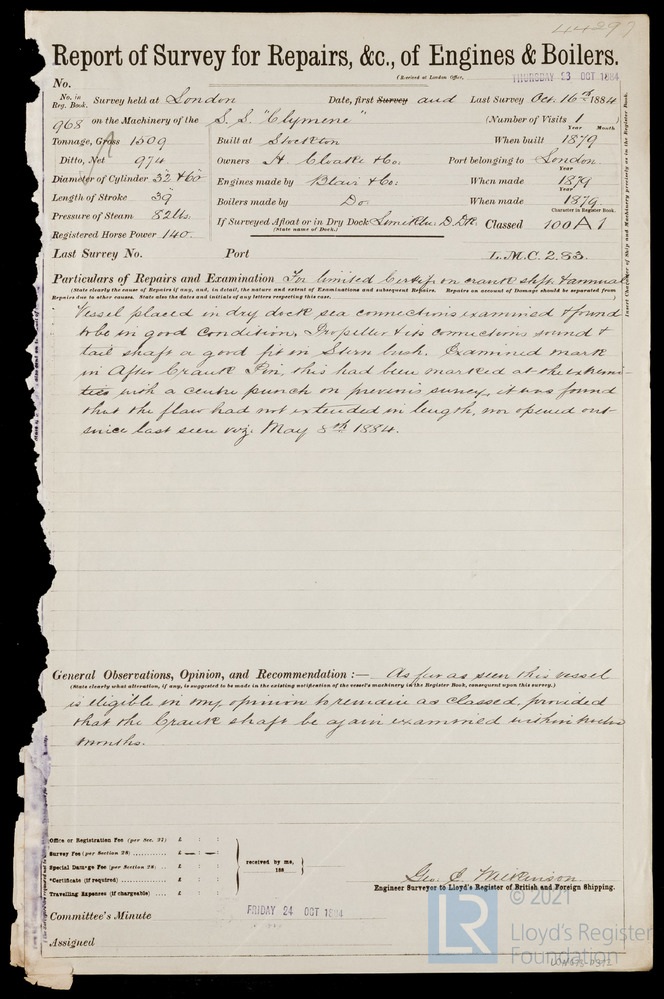 44397
Report of Survey for Repairs, &c., of Engines & Boilers.
(Received at London Office, THURSDAY 23 OCT 1884
No.
No. in Reg. Book. Survey held at London Date, first Survey and Last Survey Oct. 16th 1884
968 on the Machinery of the S. S. "Clymene" (Number of Visits 1 )
Year Month
Tonnage, Gross 1509 Built at Stockton When built 1879
Ditto, Net 974 Owners H. Cloake & Co. Port belonging to London
Year
Diameter of Cylinder 32 & 60 Engines made by Blair & Co: When made 1879
Year
Length of Stroke 39 Boilers made by Do. When made 1879
Character in Register Book.
Pressure of Steam 82 lbs. If Surveyed Afloat or in Dry Dock D. Dk Classed 100 A 1
(State name of Dock.)
Registered Horse Power 140
Last Survey No. Port L.M.C. 2.83.
Insert Character of Ship and Machinery precisely as in the Register Book.
Particulars of Repairs and Examination For limited Certif. on crank shft. & annual
(State clearly the cause of Repairs if any, and, in detail, the nature and extent of Examinations and subsequent Repairs. Repairs on account of Damage should be separated from
Repairs due to other causes. State also the dates and initials of any letters respecting this case. )
Vessel placed in dry dock sea connections examined & found
to be in good condition, Propeller & its connections sound &
tail shaft a good fit in Stern bush. Examined mark
in After Crank Pin, this had been marked at the extremi-
ties with a centre punch on previous survey, it was found
that the flaw had not extended in length, nor opened out
since last seen viz. May 8th 1884.
General Observations, Opinion, and Recommendation :— As far as seen this vessel
(State clearly what alteration, if any, is suggested to be made in the existing notification of the vessel's machinery in the Register Book, consequent upon this survey.)
is eligible in my opinion to remain as classed, provided
that the Crank shaft be again examined within twelve
months.
Office or Registration Fee (per Sec. 27) £ : :
Survey Fee (per Section 28) .......... £ — : — :
Special Damage Fee (per Section 28) .. £ : :
*Certificate (if required) .......... £ : :
Travelling Expenses (if chargeable) .... £ : :
received by me,
188
Geo. C. Mackinson
Engineer Surveyor to Lloyd's Register of British and Foreign Shipping.
Committee's Minute FRIDAY 24 OCT 1884
Assigned
© 2021
LR
Lloyd's Register
Foundation
LON673-0372